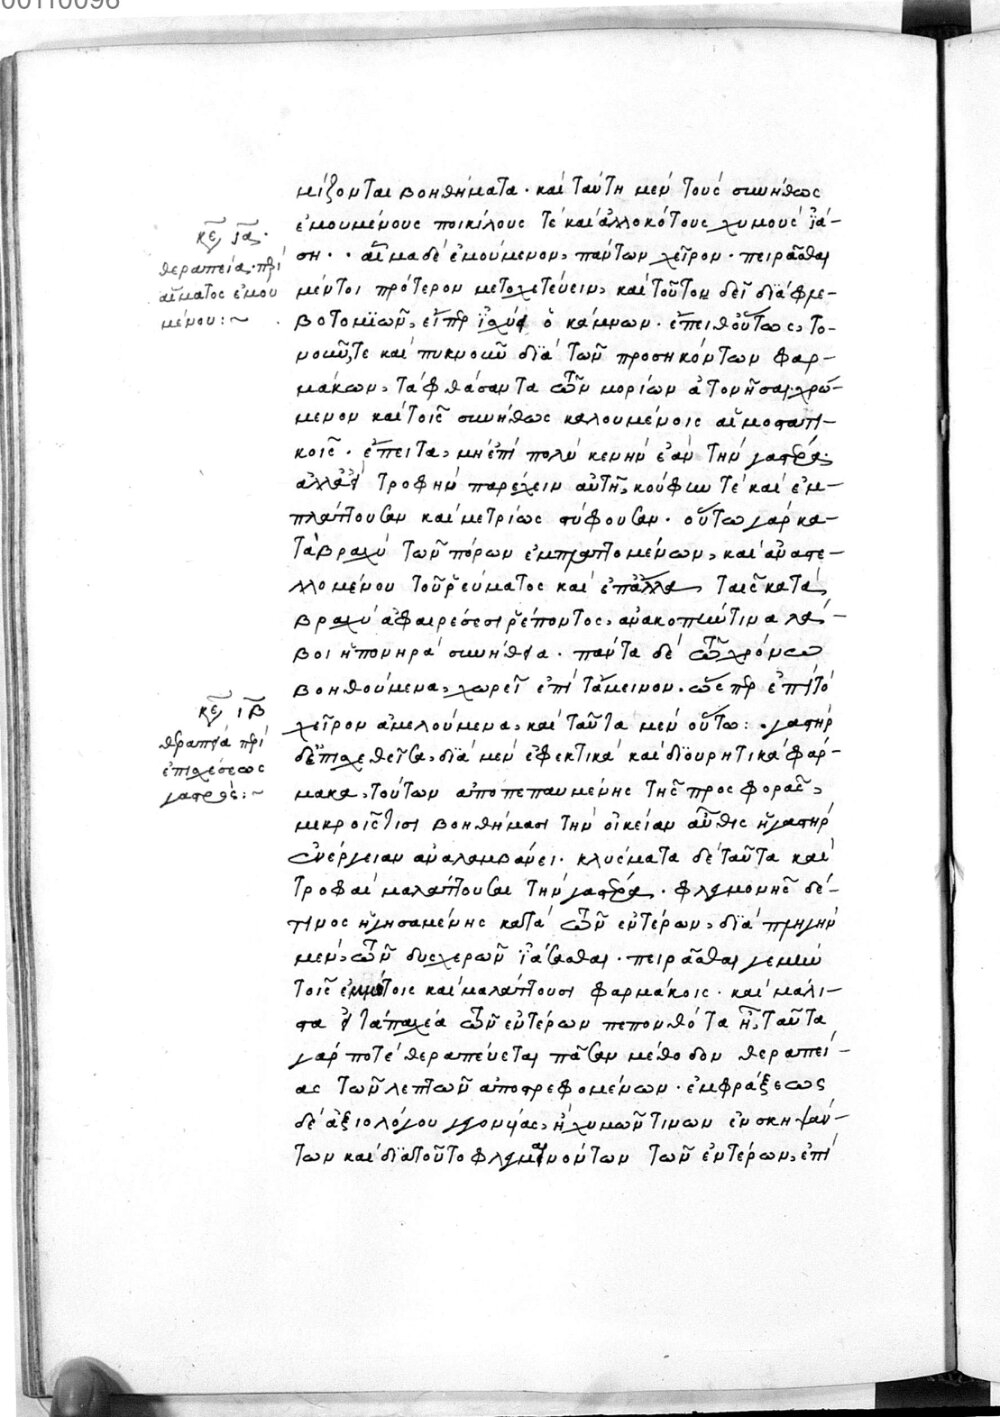 00110098
μίζονται βοηθήματα· καὶ ταύτη μὲν τοὺς συνήθως
ἐμουμένους ποικίλους τὲ καὶ ἀλλοκότους χυμοὺς ἰά-
κεφ ια·
ση·· αἷμα δὲ ἐμούμενον, πάντων χεῖρον· πειρᾶσθαι
θεραπεία περὶ
μέντοι πρότερον μετοχετεύειν, καὶ τοῦτον δεῖ διὰ φλε-
αἵματος ἐμου
βοτομιῶν, εἴπερ ἰσχύει ὁ κάμνων· ἔπειθ οὕτως, το-
μένου:~
νοῦντε καὶ πυκνοῦν διὰ τῶν προσηκόντων φαρ-
μάκων, τὰ φθάσαντα τῶν μορίων ἀτονῆσαι χρώ-
μενον καὶ τοῖς συνήθως καλουμένοις αἱμοστατι-
κοῖς· ἔπειτα, μὴ ἐπὶ πολὺ κενὴν ἐᾶν τὴν γαστέρα·
ἀλλὰ τροφὴν παρέχειν αὐτῆ, κούφην τὲ καὶ ἐμ-
πλάττουσαν καὶ μετρίως στύφουσαν· οὕτω γὰρ κα-
ταβραχὺ τῶν πόρων ἐμπλαττομένων, καὶ ἀναστε-
λλομένου τοῦ ῥεύματος καὶ ἐπάλλα ταῖς κατὰ
βραχὺ ἀφαιρέσεσι ῥέποντος, ἀνακοπήν τινα λά-
βοι ἡ πονηρὰ συνήθεια· πάντα δὲ τῶ χρόνω
βοηθούμενα, χωρεῖ ἐπὶ τἄμεινον· ὥσπερ ἐπὶ τὸ
κεφ ιβ
χεῖρον ἀμελούμενα, καὶ ταῦτα μὲν οὕτω:· γαστὴρ
θεραπεία περὶ
δ' ἐπισχεθεῖσα, διὰ μὲν ἐφεκτικὰ καὶ διουρητικὰ φάρ-
ἐπισχέσεως
μακα, τούτων ἀποπεπαυμένης τῆς προσφορᾶς,
γαστρός:~
μικροῖς τισι βοηθήμασι τὴν οἰκείαν αὖθις ἡ γαστὴρ
ἐνέργειαν ἀναλαμβάνει· κλύσματα δὲ ταῦτα καὶ
τροφαὶ μαλάττουσαι τὴν γαστέρα· φλεγμονῆς δέ-
τινος ἡγησαμένης κατὰ τῶν ἐντέρων, διὰ πηγὴν
μὲν, τῶν δυσχερῶν ἰάσασθαι· πειρᾶσθαι γεμὴν
τοῖς καὶ μαλάττουσι φαρμάκοις· καὶ μάλι-
στα εἰ τὰ παχέα τῶν ἐντέρων πεπονθότα ἦ, ταῦτα
γάρ ποτε θεραπεύεται πᾶσαν μέθοδον θεραπεί-
ας τῶν λεπτῶν ἀποστρεφομένων· ἐμφράξεως
δὲ ἀξιολόγου γεγονυίας, ἢ χυμῶν τινων ἐνσκηψάν-
των καὶ διατοῦτο φλεγμαινόντων τῶν ἐντέρων, ἐπὶ